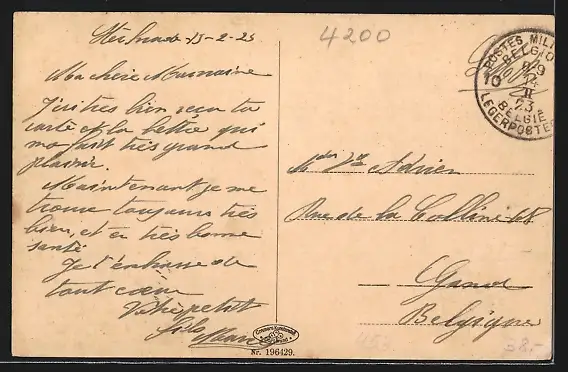 15-2-23
Ma chère Marraine
J'ai très bien reçu ta
carte et la lettre qui
ma fait très grand
plaisir.
Maintenant je me
trouve toujours très
bien, et en très bonne
santé
Je t'embrasse de
tout cœur
Votre petit
fils
Marc
4200
POSTES MILIT
BELGIQ
10
II
23
BELGIË
LEGERPOSTE
Adrien
Rue de la Colline 48
Gand
Belgique
Nr. 196429.
38.-